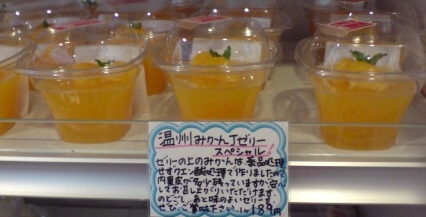 温州みかんTゼリー
スペシャル
ゼリーの上のみかんは薬品処理
せずクエン酸処理で作りましたので
内果皮が多少残っていますが安心
してお召し上がりいただけます
のどごしと後味のよいゼリーを
ご賞味下さい 189円